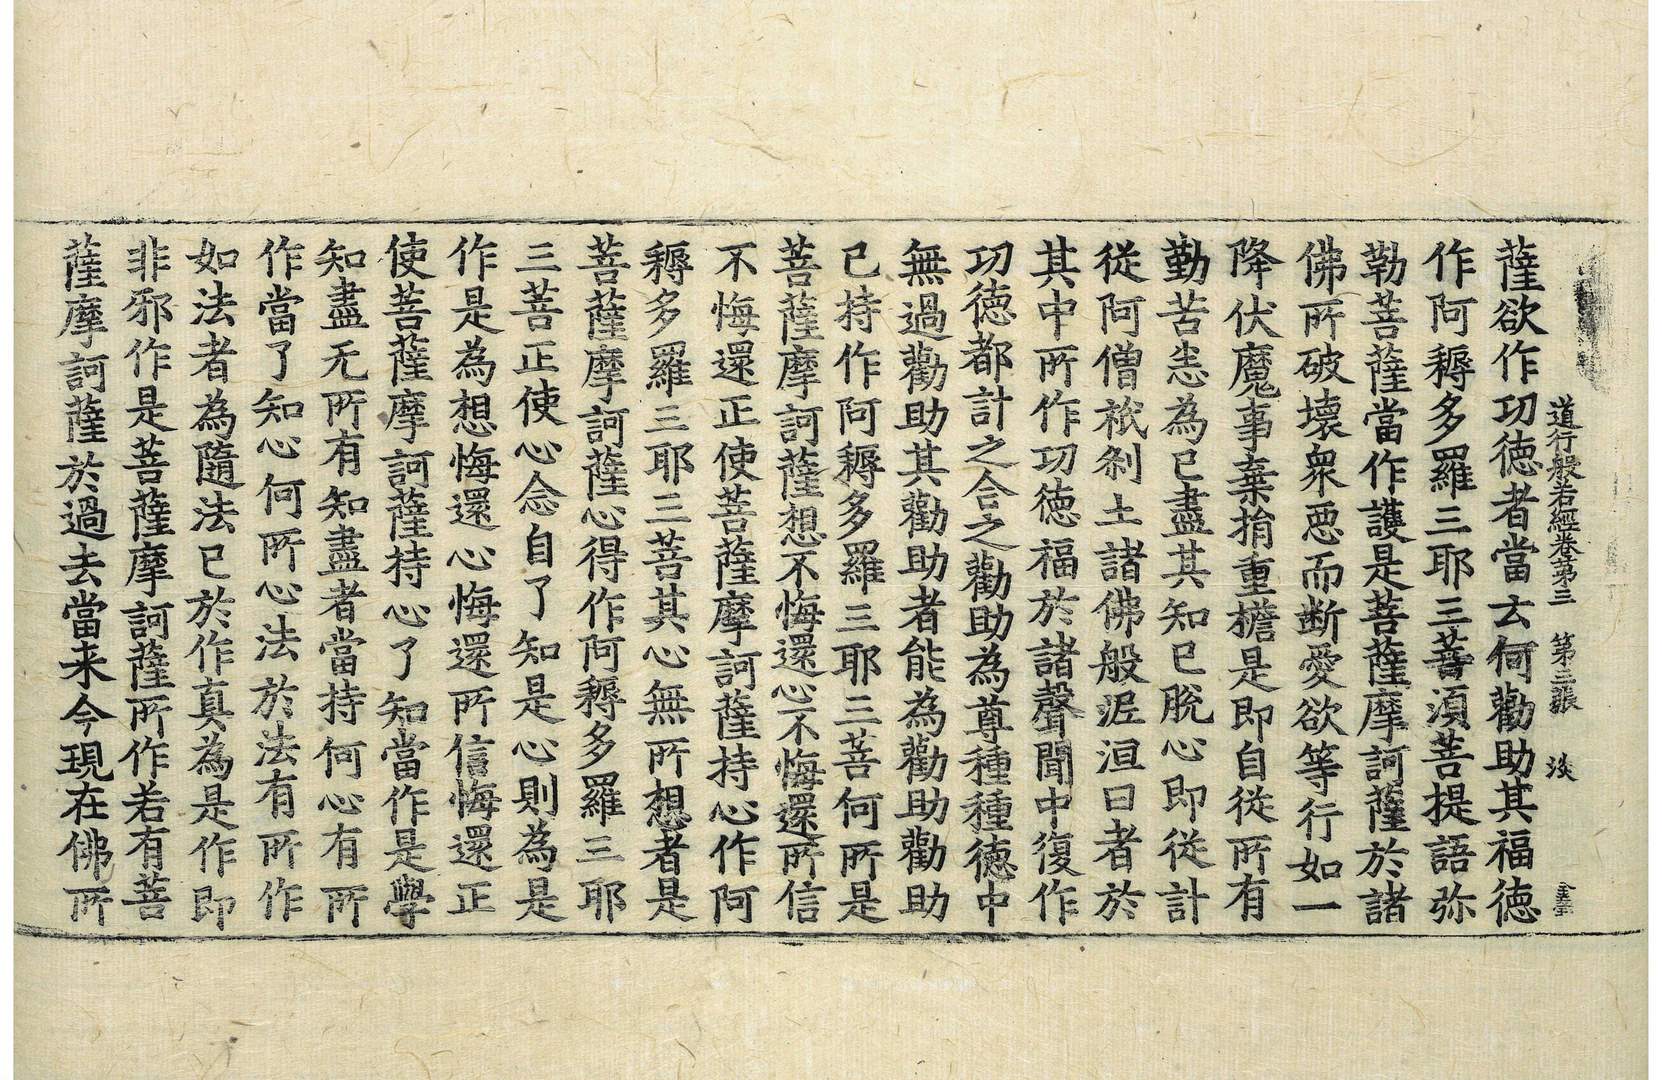 道行般若經卷第三 第三張 淡
薩欲作功德者當云何勸助其福德
作阿耨多羅三耶三菩須菩提語弥
勒菩薩當作護是菩薩摩訶薩於諸
佛所破壞衆惡而断愛欲等行如一
降伏魔事棄捐重檐是即自從所有
勤苦悉為已盡其知已脫心即從計
從阿僧祇剎土諸佛般泥洹曰者於
其中所作功德福於諸聲聞中復作
功德都計之合之勸助為尊種種德中
無過勸助其勸助者能為勸助勸助
已持作阿耨多羅三耶三菩何所是
菩薩摩訶薩想不悔還心不悔還所信
不悔還正使菩薩摩訶薩持心作阿
耨多羅三耶三菩其心無所想者是
菩薩摩訶薩心得作阿耨多羅三耶
三菩正使心念自了知是心則為是
作是為想悔還心悔還所信悔還正
使菩薩摩訶薩持心了知當作是學
知盡无所有知盡者當持何心有所
作當了知心何所心法於法有所作
如法者為隨法已於作真為是作即
非邪作是菩薩摩訶薩所作若有菩
薩摩訶薩於過去當来今現在佛所